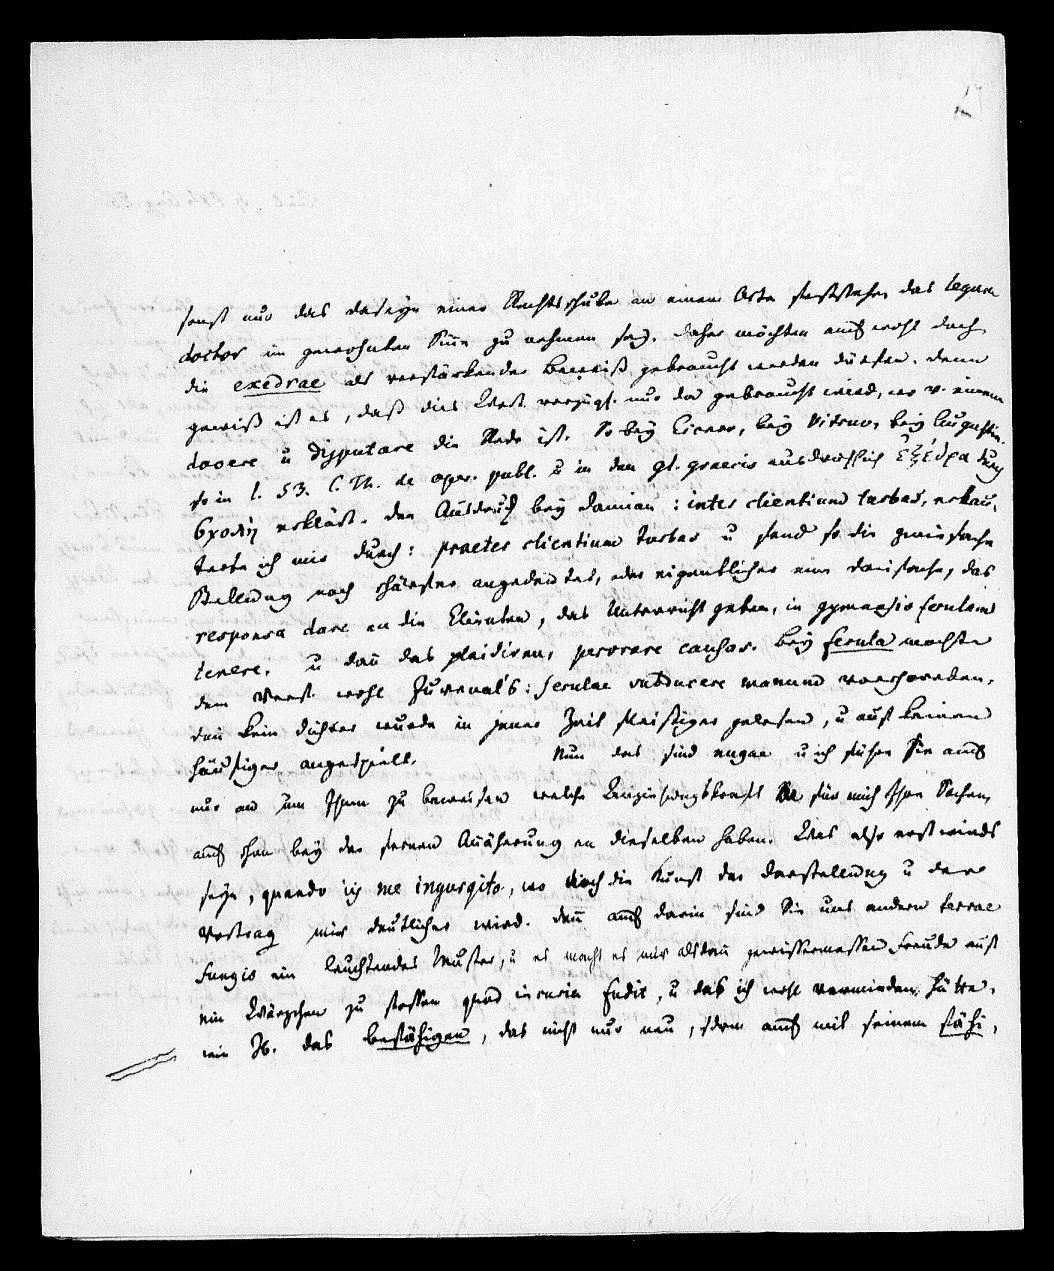 sonst nur das daseyn einer Rechtsschule an einem Orte feststehen, das legum
doctor im gewohnten Sinn zu nehmen sey. Daher möchten auch wohl doch
die exedrae als verstärkender Beweiß gebraucht werden dürfen. Denn
gewiß ist es, daß dies Wort vorzügl. nur da gebraucht wird, wo v. einem
docere u disputare die Rede ist. So bey Cicero, bey Vitruv, bey Augustin.
so in l. 53. C. Th. de oper. publ. u in den gl. graecis ausdrücklich ἐξέδρα durch
σχολὴ erklärt. Den Ausdruck bey Damian: inter clientium turbas, erkau-
terte ich mir durch: praeter clientium turbas u fand so die zweifache
Stellung noch schärfer angedeutet, oder eigentlicher eine dreifache, das
responsa dare an die Clienten, das Unterricht geben, in gymnasio ferulam
tenere, u dañ das plaidiren, perorare causas. Bey ferula mochte
dem Verf. wohl Juvenal's: ferulae subducere manum vorschweben,
deñ kein Dichter wurde in jener Zeit fleißiger gelesen, u auf keinen
häufiger angespielt. Nun das sind nugae u ich führe sie auch
nur an um Ihnen zu beweisen welche Anziehungskraft für mich Ihre Sachen,
auch schon bey der fernen Annäherung an dieselben haben. Was also erst wirds
seyn, quando iis me ingurgito, wo durch die Kunst der Darstellung u deren
Vortrag mir deutlicher wird. Deñ auch darin sind Sie uns andern terrae
fungis ein leuchtendes Muster, u es macht es mir alsdañ gewissermassen Freude auf
ein Wärzchen zu stossen quod incuria fudit, u das ich wohl vermieden hätte,
wie z. B. das befähigen, das nicht nur neu, sdern auch mit seinem fähi,